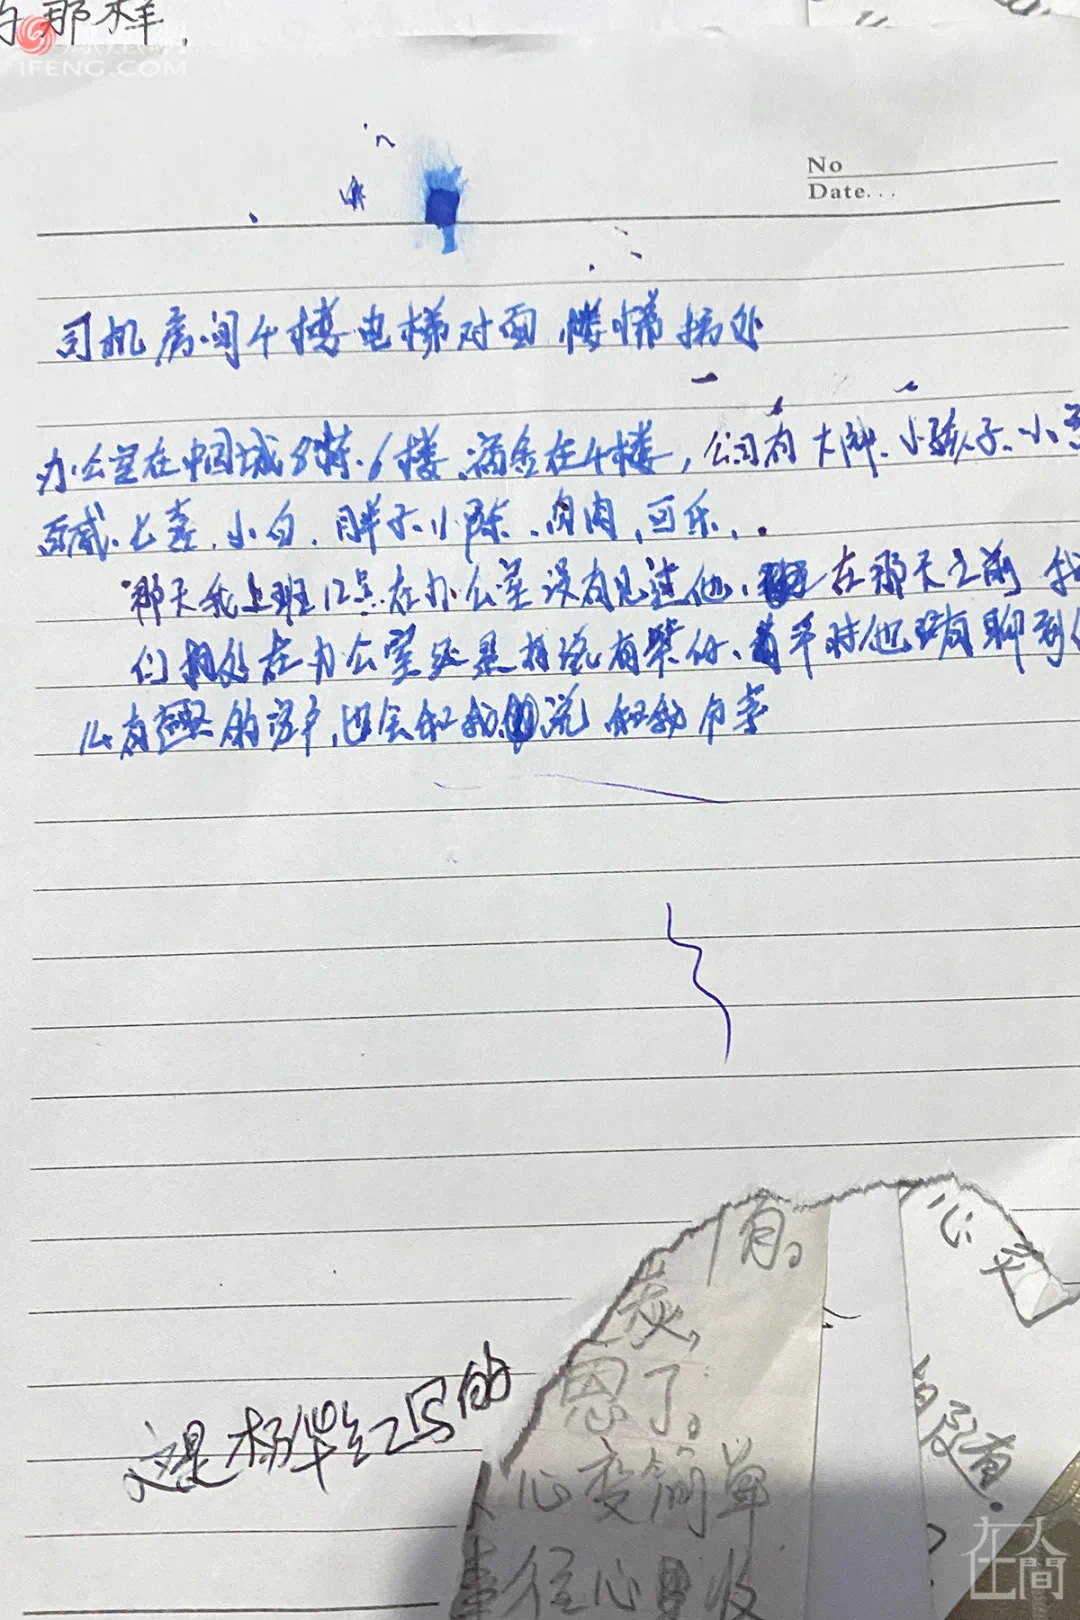 的那样.
IFENG.COM
No
Date...
司机房间4楼电梯对面,楼梯拐处
办公室在中国城8栋.6楼.宿舍在4楼,公司有大脚.小孩子.小
百威.七喜.小白.胖子.小陈.肉肉,可乐,.
那天我上班12点在办公室没有见过他,在那天之前 我
们相处在办公室还是挺说有笑的、平时他聊到
么有趣的客户,也会和我说 和我分享
有。
炭,
心灵
恩了。
没有.
这是杨华红写的
人心变简单
事往心里收
在人间